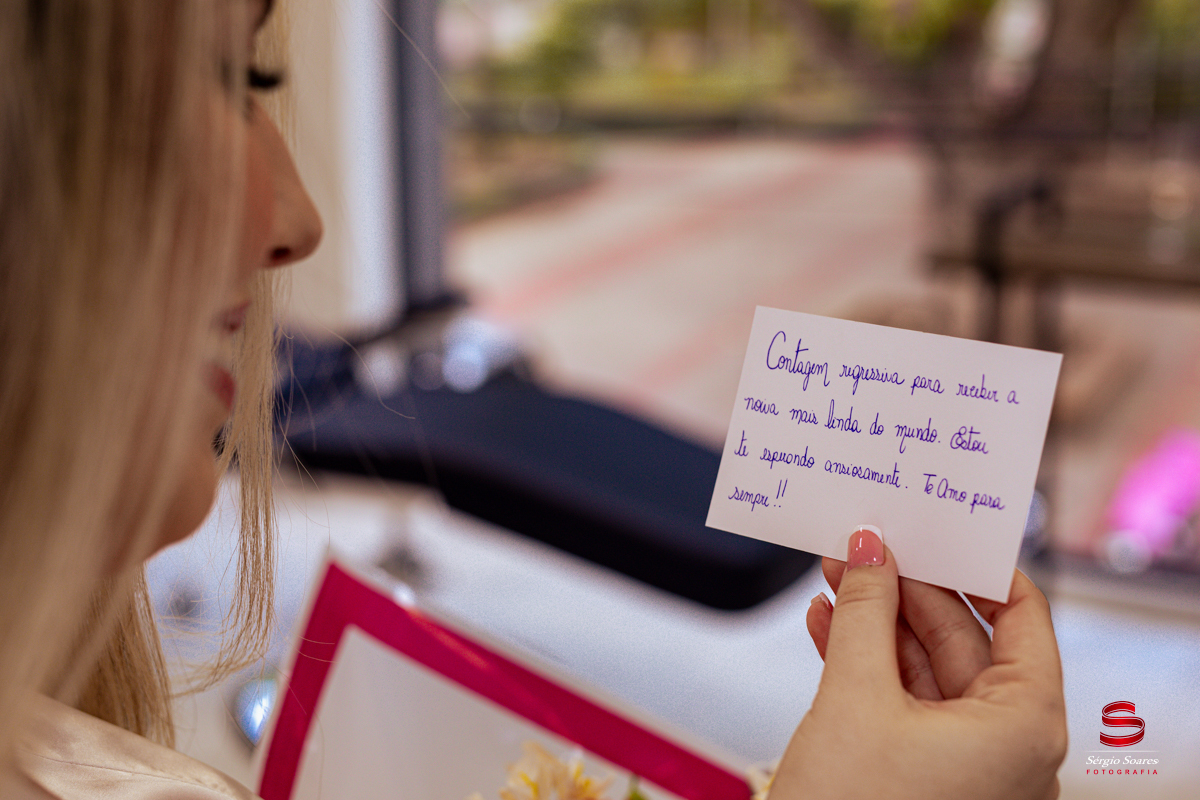 Contagem regressiva para receber a
noiva mais linda do mundo. Estou
te esperando ansiosamente. Te Amo para
sempre!!
Sérgio Soares
FOTOGRAFIA